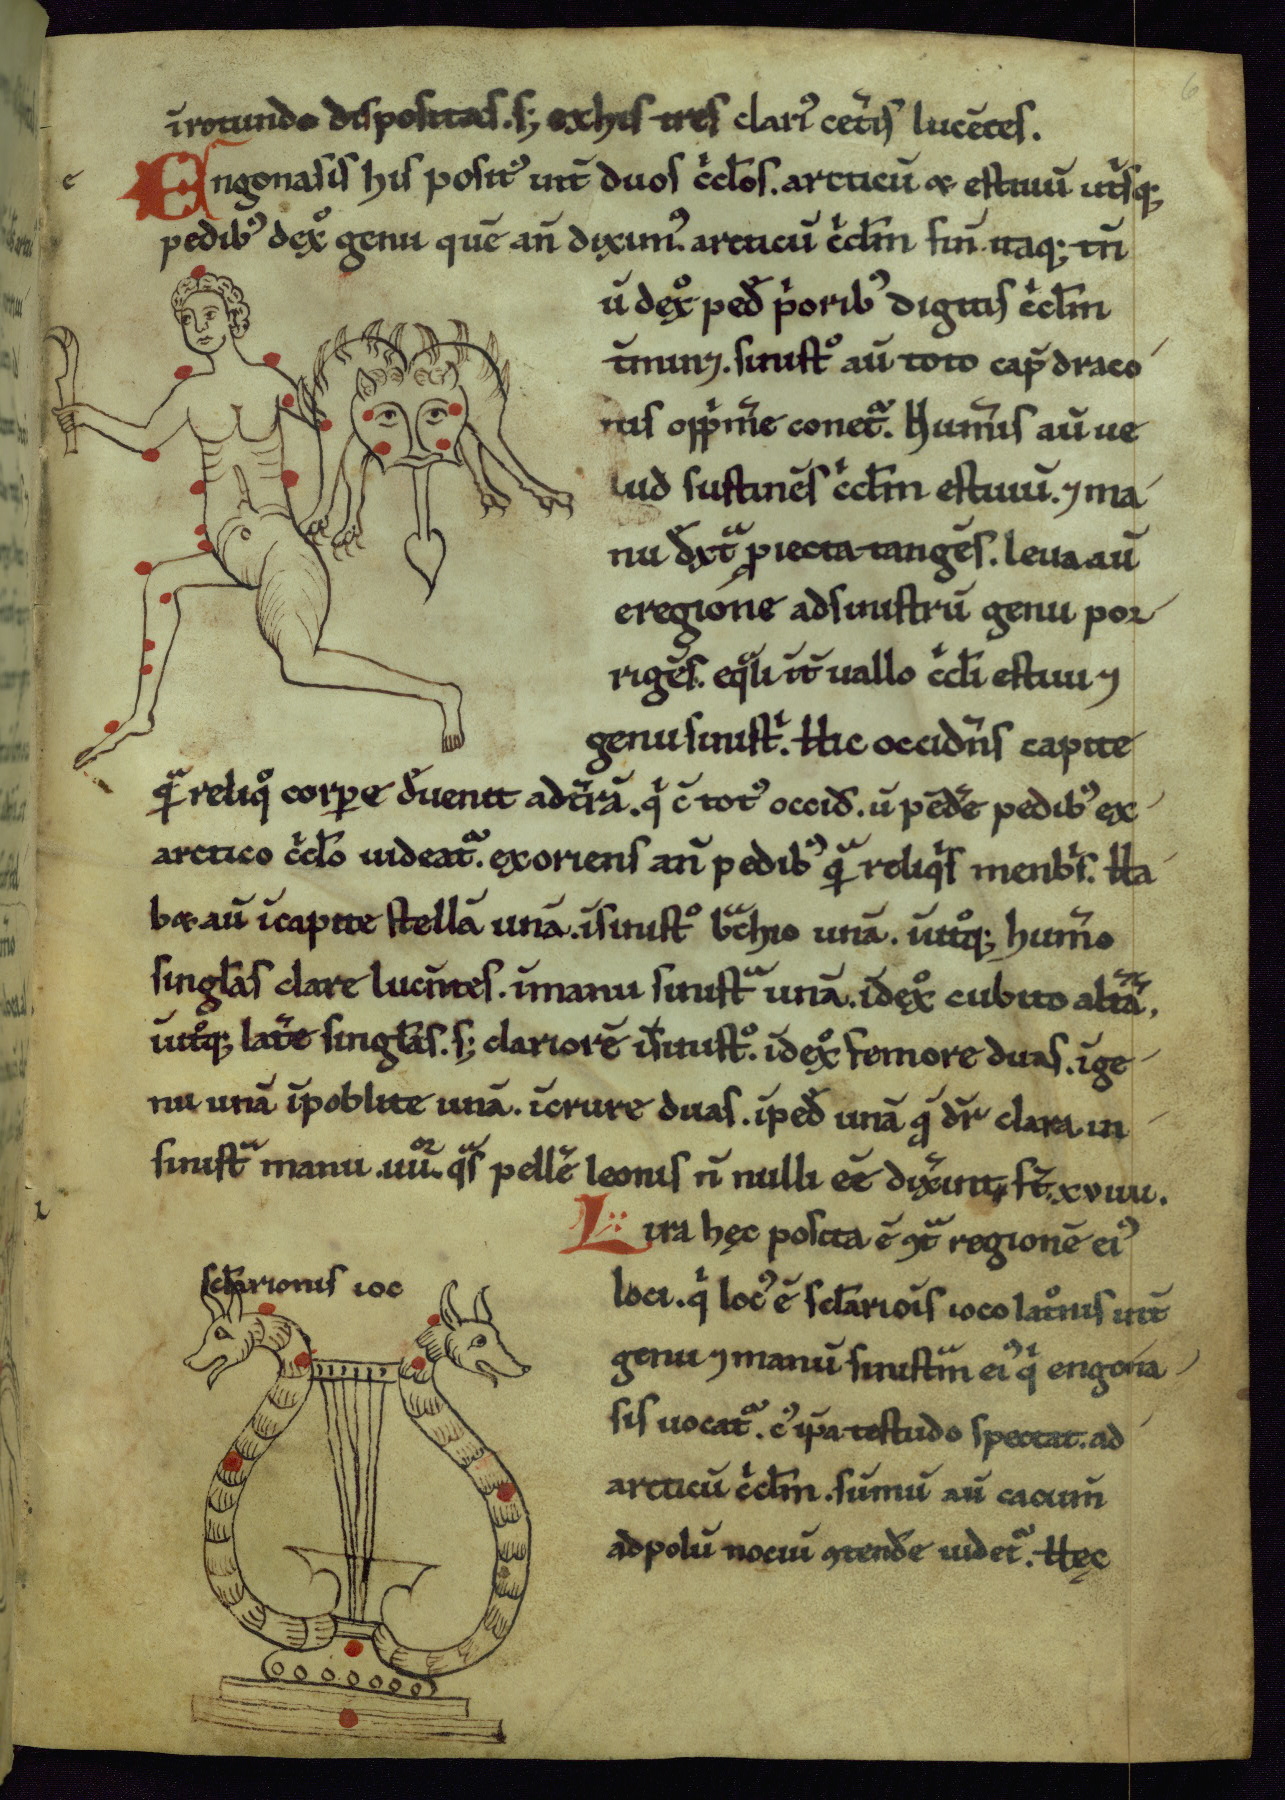 īrotundo dispositas. s; exhis tres clariꝰ cet̄is lucētes.
Engonasis his positꝰ int̄ duos c̄clos. arcticū & estiuū ut̄sq;
pedibꝰ dexͦ genu quē an̄ diximꝰ arcticū c̄clm̄ fin̄ itaq; tn̄
ū dexͦ ped̄ p̄oribꝰ digitis c̄clm̄
t̄minꝫ. sinistͦ aū toto cap̄ draco
nis opp̄m̄e conet̄. Hum̄is aū ue
lud sustinēs c̄clm̄ estiuū. ⁊ ma
nu d̄xt̄ ꝓiecta tangēs. leua aū
eregione adsinistrū genu por
rigēs. eq̄li īt̄uallo c̄cli estiui ⁊
genu sinist̄. Hic occidn̄s capite
q̄ reliqͦ corpe d̄uenit adt̄rā. q̄ c̄ totꝰ occid̄. ū pēd̄e pedibꝰ ex
arctico c̄clo uideat̄. exoriens an̄ pedibꝰ q̄ reliq̄s menb̄s. Ha
b& aū īcapite stellā unā. īsinistͦ b̄chio unā. īut̄q; hum̄o
singlas clare lucn̄tes. īmanu sinist̄ unā. īdexͦ cubito alt̄ā,
īut̄q; lat̄e singlas. s; clariorē īsinistͦ. īdexͦ femore duas. īge
nu unā īpoblite unā. īcrure duas. īped̄ unā q̄ dr̄ clara in
sinist̄ manu .uū. q̄s pellē leonis n̄ nulli eē dix̄int, st̄. xviiii.
Lira hęc posita ē ɔt̄ regionē eiꝰ
loci. q̄ locꝰ ē sclariōis ioco latōnis int̄
genu ⁊ manū sinistm̄ eiꝰ q̄ engona
sis uocat̄. cꝰ ip̄a testudo spectat. ad
arcticū c̄clm̄. sūmū aū cacum̄
adpolū nociū ɔtend̄e uidet̄. Hęc
sclarionis ioc
e
L
6